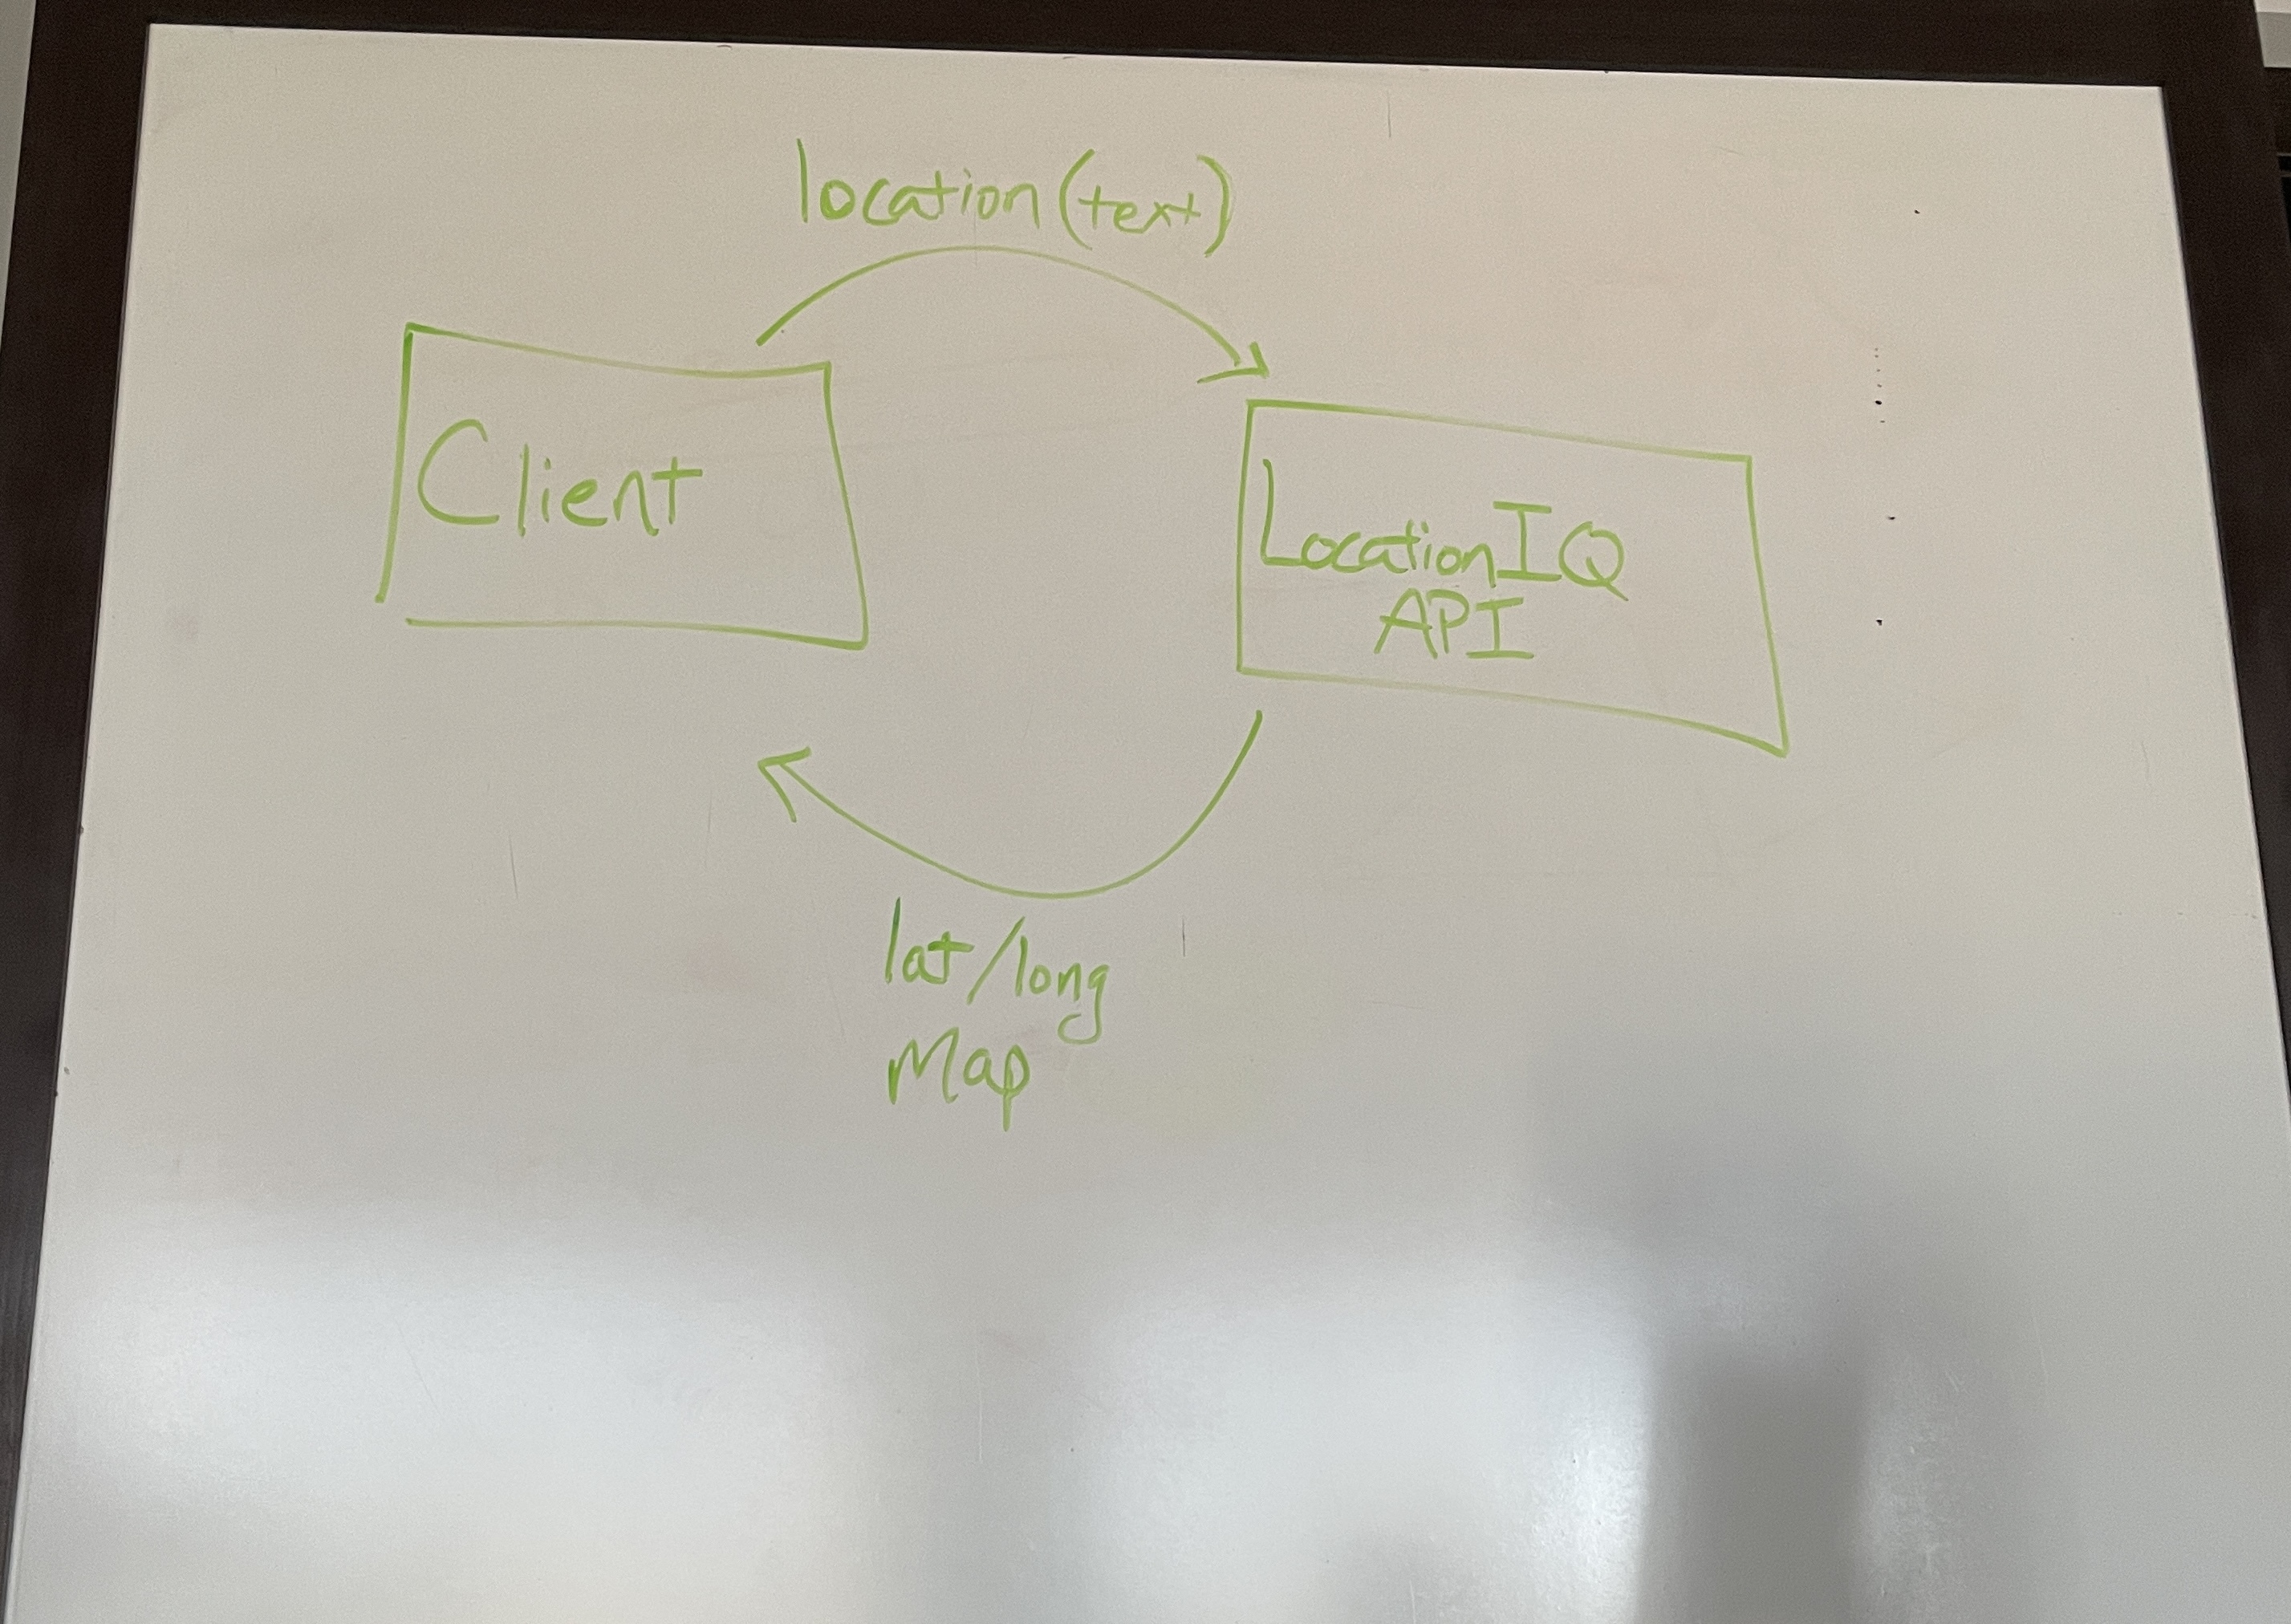 location (text)
Client
LocationIQ
API
lat/long
Map